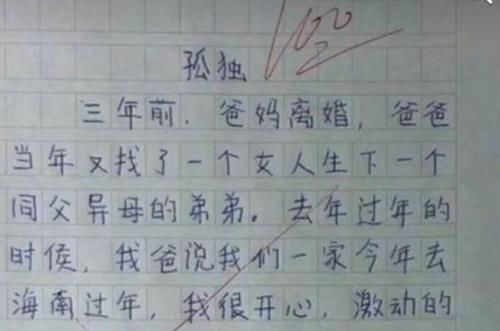 100
孤独
三年前.爸妈离婚,爸爸
当年又找了一个女人生下一个
同父异母的弟弟。去年过年的
时侯,我爸说我们一家今年去
海南过年,我很开心,激动的